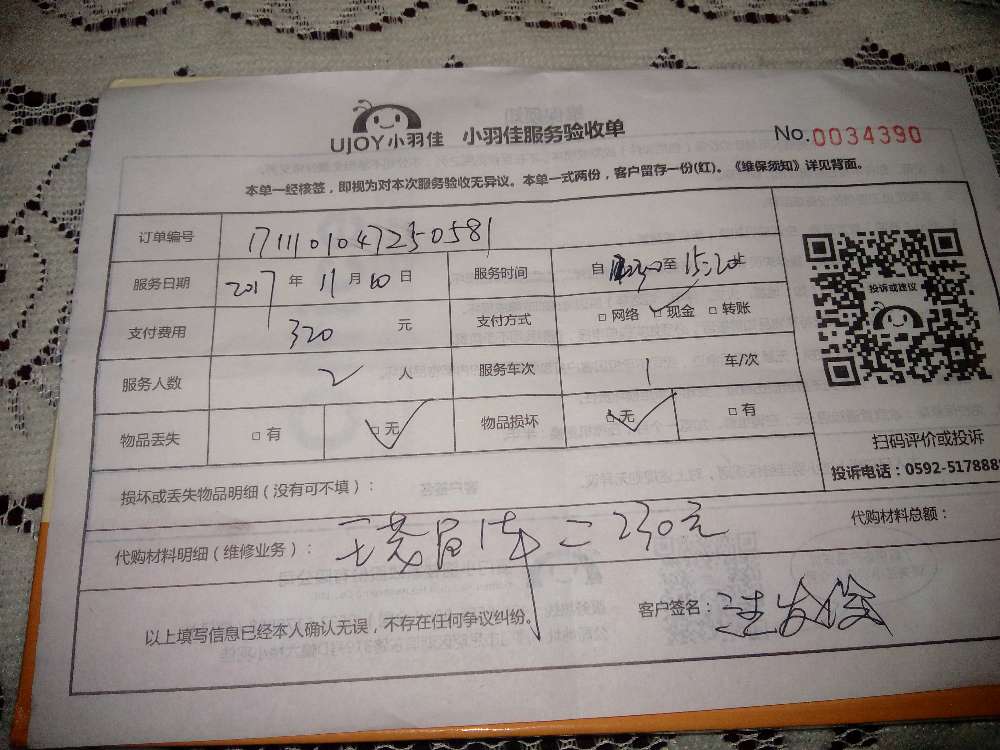 UJOY小羽佳 小羽佳服务验收单 No.0034390
本单一经核签，即视为对本次服务验收无异议。本单一式两份，客户留存一份(红)。《维保须知》详见背面。
订单编号 1711101047250581
服务日期 2017年11月10日 服务时间 自 至15:20止
支付费用 320元 支付方式 □网络 ☑现金 □转账
服务人数 2人 服务车次 1 车/次
物品丢失 □有 ☑无 物品损坏 ☑无 □有
投诉或建议
扫码评价或投诉
投诉电话：0592-5178888
损坏或丢失物品明细（没有可不填）：
代购材料明细（维修业务）： 二230元 代购材料总额：
以上填写信息已经本人确认无误，不存在任何争议纠纷。 客户签名：